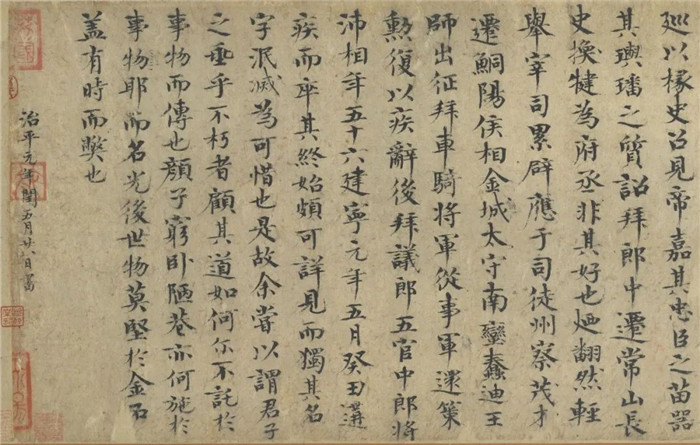 廵以掾史召見帝嘉其忠臣之苗器
其璵璠之質詔拜郎中遷常山長
史換犍為府丞非其好也廼翻然輕
舉宰司累辟應于司徒州察茂才
遷鮦陽侯相金城太守南蠻蠢迪王
師出征拜車騎將軍從事軍還策
勲復以疾辭後拜議郎五官中郎將
沛相年五十六建寧元年五月癸丑遘
疾而卒其終始頗可詳見而獨其名
字泯滅為可惜也是故余嘗以謂君子
之垂乎不朽者顧其道如何尔不託於
事物而傳也顔子窮卧陋巷亦何施於
事物耶而名光後世物莫堅於金石
盖有時而弊也
治平元年閏五月廿八日書